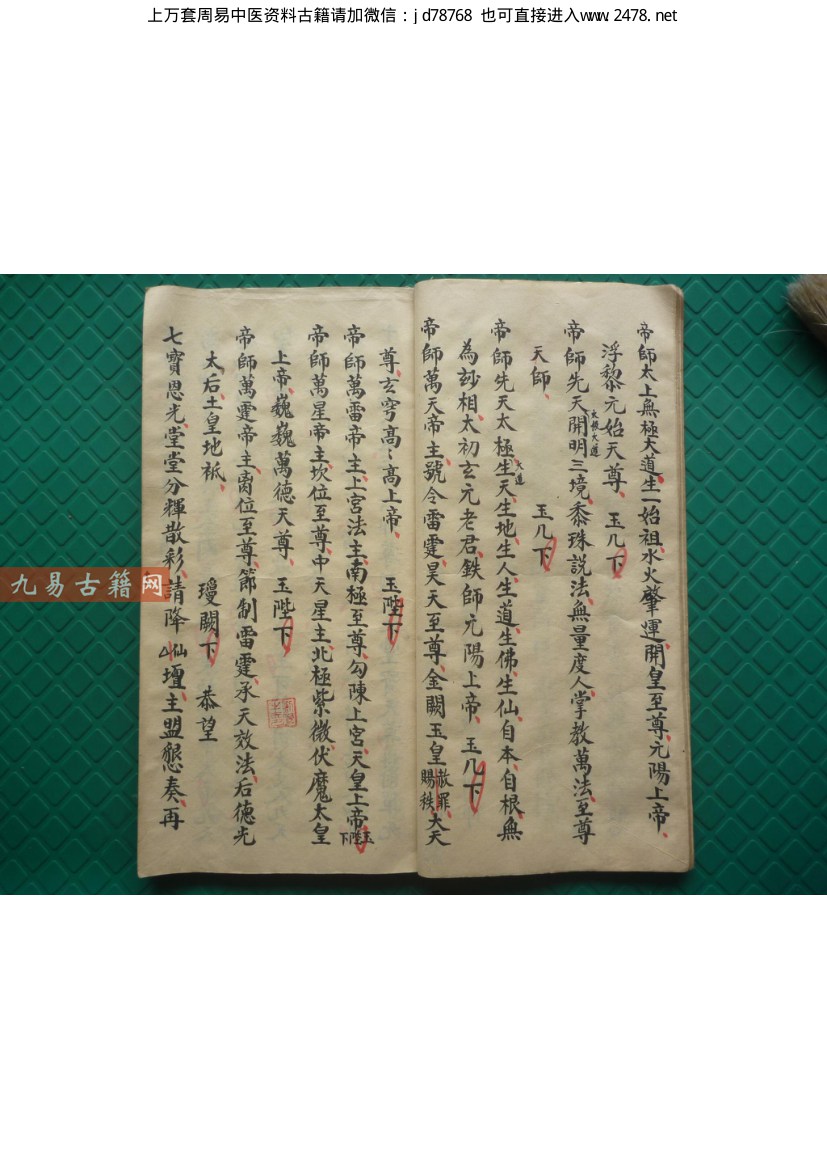 上万套周易中医资料古籍请加微信：jd78768 也可直接进入www.2478.net
帝師太上無極大道生一始祖水火肇運開皇至尊元陽上帝
浮黎元始天尊 玉几下
帝師先天太極大道開明三境黍珠説法無量度人掌教萬法至尊
天師 玉几下
帝師先天太極生大道天生地生人生道生佛生仙自本自根無
為玅相太初玄元老君鉄師元陽上帝 玉几下
帝師萬天帝主號令雷霆昊天至尊金闕玉皇赦罪賜秩大天
尊玄穹高高上帝 玉陛下
帝師萬雷帝主上宮法主南極至尊勾陳上宮天皇上帝玉陛下
帝師萬星帝主坎位至尊中天星主北極紫微伏魔太皇
上帝巍巍萬德天尊 玉陛下
帝師萬霆帝主离位至尊節制雷霆承天效法后德光
太后土皇地祇 瓊闕下 恭望
七寶恩光堂堂分輝散彩請降仙壇主盟懇奏再
九易古籍网